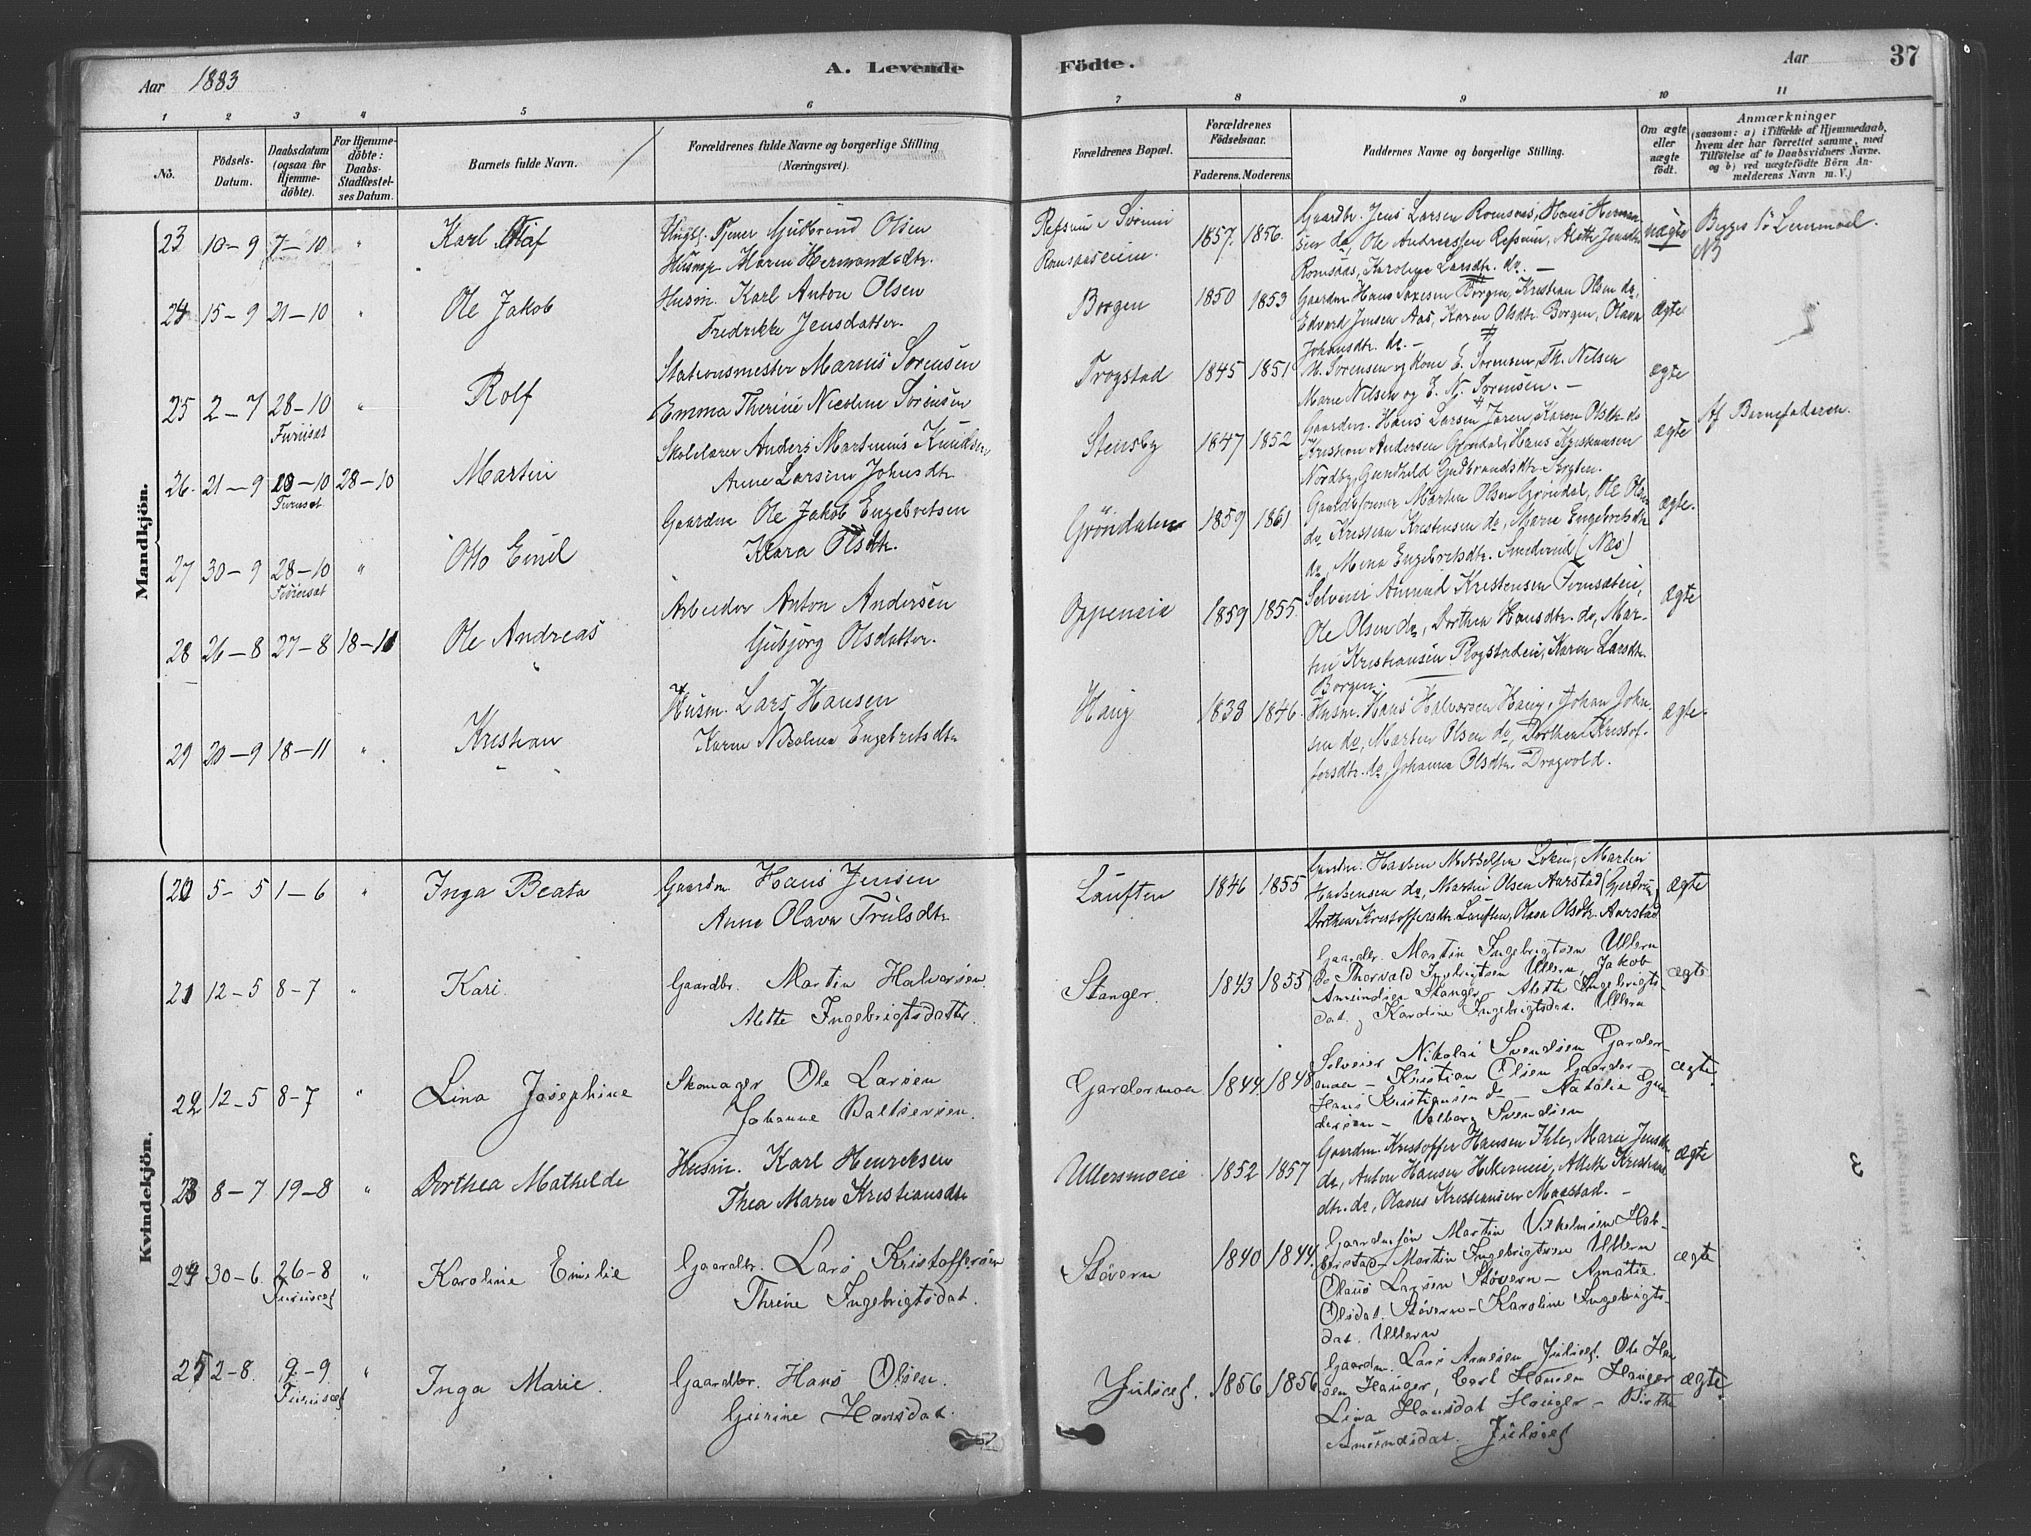 Aar 1883
A. Levende
Födte.
Aar
37
1 2 3 4 5 6 7 8 9 10 11
No.
Födsels-
Datum.
Daabsdatum
(ogsaa for
Hjemme-
döbte).
For Hjemme-
döbte:
Daabs-
Stadfæstel-
ses Datum.
Barnets fulde Navn.
Forældrenes fulde Navne og borgerlige Stilling
(Næringsvei).
Forældrenes Bopæl.
Forældrenes
Födselsaar.
Faderens. Moderens.
Faddernes Navne og borgerlige Stilling.
Om ægte
eller
uægte
födt.
Anmærkninger
(saasom: a) i Tilfælde af Hjemmedaab,
hvem der har forrettet samme, med
Tilföielse af to Daabsvidners Navne,
og b) ved uægtefödte Börn An-
melderens Navn m. V.)
Mandkjön.
23 10-9 7-10 " Karl Olaf
Ungk. Tjener Gudbrand Olsen
Maren Hermansdtr.
Romsaaseie
1857. 1856.
Gaardbr. Jens Larsen Romsaas, Hans Herman-
sen do, Ole Andreassen Refsum, Alette Jensdtr
Romsaas, Karoline Larsdtr. do. -
uægte
Begges 1ste Leiermaal.
NB
24 15-9 21-10 " Ole Jakob
Husm. Karl Anton Olsen
Fredrikke Jensdatter.
Borgen
1850 1853
Gaardm. Hans Borgen, Kristian Olsen do,
Edvard Jensen Aas, Karen Olsdtr. Borgen, Olava
Johansdtr. do. -
ægte
25 2-7 28-10 " Rolf
Furuset
Stationsmester Marius Sörensen
Emma Therine Nicoline Sörensen
Trogstad
1845 1851
M. Sörensen og Kone E. Sörensen, Th. Nilsen
Marie Nilsen og E. N. Sörensen. -
ægte
26. 21-9 28-10 28-10 Martin
Furuset
Skolelærer Anders Martinius Knudsen
Anne Larsine Johnsdtr
Stensby
1847 1852
Gaardm. Hans Larsen Jaren, Karen Olsdtr. do
Kristian Andersen Gröndal, Hans Kristiansen
Nordby, Gunhild Gudbrandsdtr.
ægte
Af Barnefaderen.
27 30-9 28-10 " Otto Emil
Furuset
Gaardm Ole Jakob Engebretsen
Klara Olsdtr.
Gröndalen
1859 1861
Gaardbruger Martin Olsen Gröndal, Ole Olsen
do, Kristian Kristensen do, Marie Engebretsdtr
do, Mina Engebretsdtr. Smederud (Næs)
ægte.
28 26-8 27-8 18-11 Ole Andreas
Arbeider Anton Andersen
Gubjörg Olsdatter.
Oppeneie
1859 1855.
Selveier Amund Kristensen
Ole Olsen do, Dorthea Hansdtr. do, Mar-
tin Kristiansen Rogstadeie, Karen Larsdtr.
Borgen.
ægte
29 20-9 18-11 " Kristian
Husm. Lars Hansen
Karen Nikoline Engebretsdtr
Haug
1838 1846.
Husm. Hans Halvorsen Haug, Johan John-
sen do, Martin Olsen do, Dorthea Kristof-
fersdtr. do, Johanne Olsdtr. Dragvold.
ægte.
Kvindekjön.
20 5-5 1-6 " Inga Beata
Gaardm. Hans Jensen
Anne Olava Trulsdtr.
Lauften
1846 1855
Gaardm. Hansen Löken, Martin
Hansen do, Martin Olsen Aurstad
Dorthea Kristoffersdtr. Lauften, Olava Olsdtr. Aurstad
ægte
21 12-5 8-7 " Kari.
Gaardbr. Martin Halvorsen.
Alette Ingebrigtsdatter.
Stanger.
1843 1855
Gaardbr. Martin Ingebrigtsen Ullern
do Thorvald Ingebrigtsen Ullern, Jakob
Amundsen Stanger - Alette Ingebrigts-
dat. og Karoline Ingebrigtsdat. Ullern
ægte
22 12-5 8-7 " Lina Josephine
Skomager Ole Larsen
Johanne Baltsersen.
Gardermoen
1844 1848
Selveier Nikolai Svendsen Garder-
moen - Kristian Olsen Garder -
Hans Kristiansen do - Natalie
Valborg Svendsen
ægte.
23 8-7 19-8 " Dorthea Mathilde
Husm. Karl Henriksen
Thea Marie Kristiansdtr
Ullersmoeie
1852 1857
Gaardm. Kristoffer Hansen Ihle, Marie Jensdtr.
do, Anton Hansen, Alette Kristians-
dtr. do, Olavus Kristiansen Maastad. -
ægte
24 30-6. 26-8 " Karoline Emilie
Furuset
Gaardbr. Lars Kristoffersen
Thrine Ingebrigtsdat.
Stövern
1840 1844.
Gaardmsön Martin Vilhelmsen Hab-
berstad - Martin Ingebrigtsen Ullern
Olaus Larsen Stövern - Amalie
Olsdat. Stövern - Karoline Ingebrigts-
dat. Ullern
ægte
25 2-8. 9-9 " Inga Marie.
Furuset
Gaardbr. Hans Olsen.
Gurine Hansdat.
Julset.
1856 1856
Gaardm. Lars Arnesen Julset. Ole Han-
sen Hauger, Carl Hansen Hauger
Lina Hansdat Hauger - Birthe
Amundsdat. Julset
ægte.